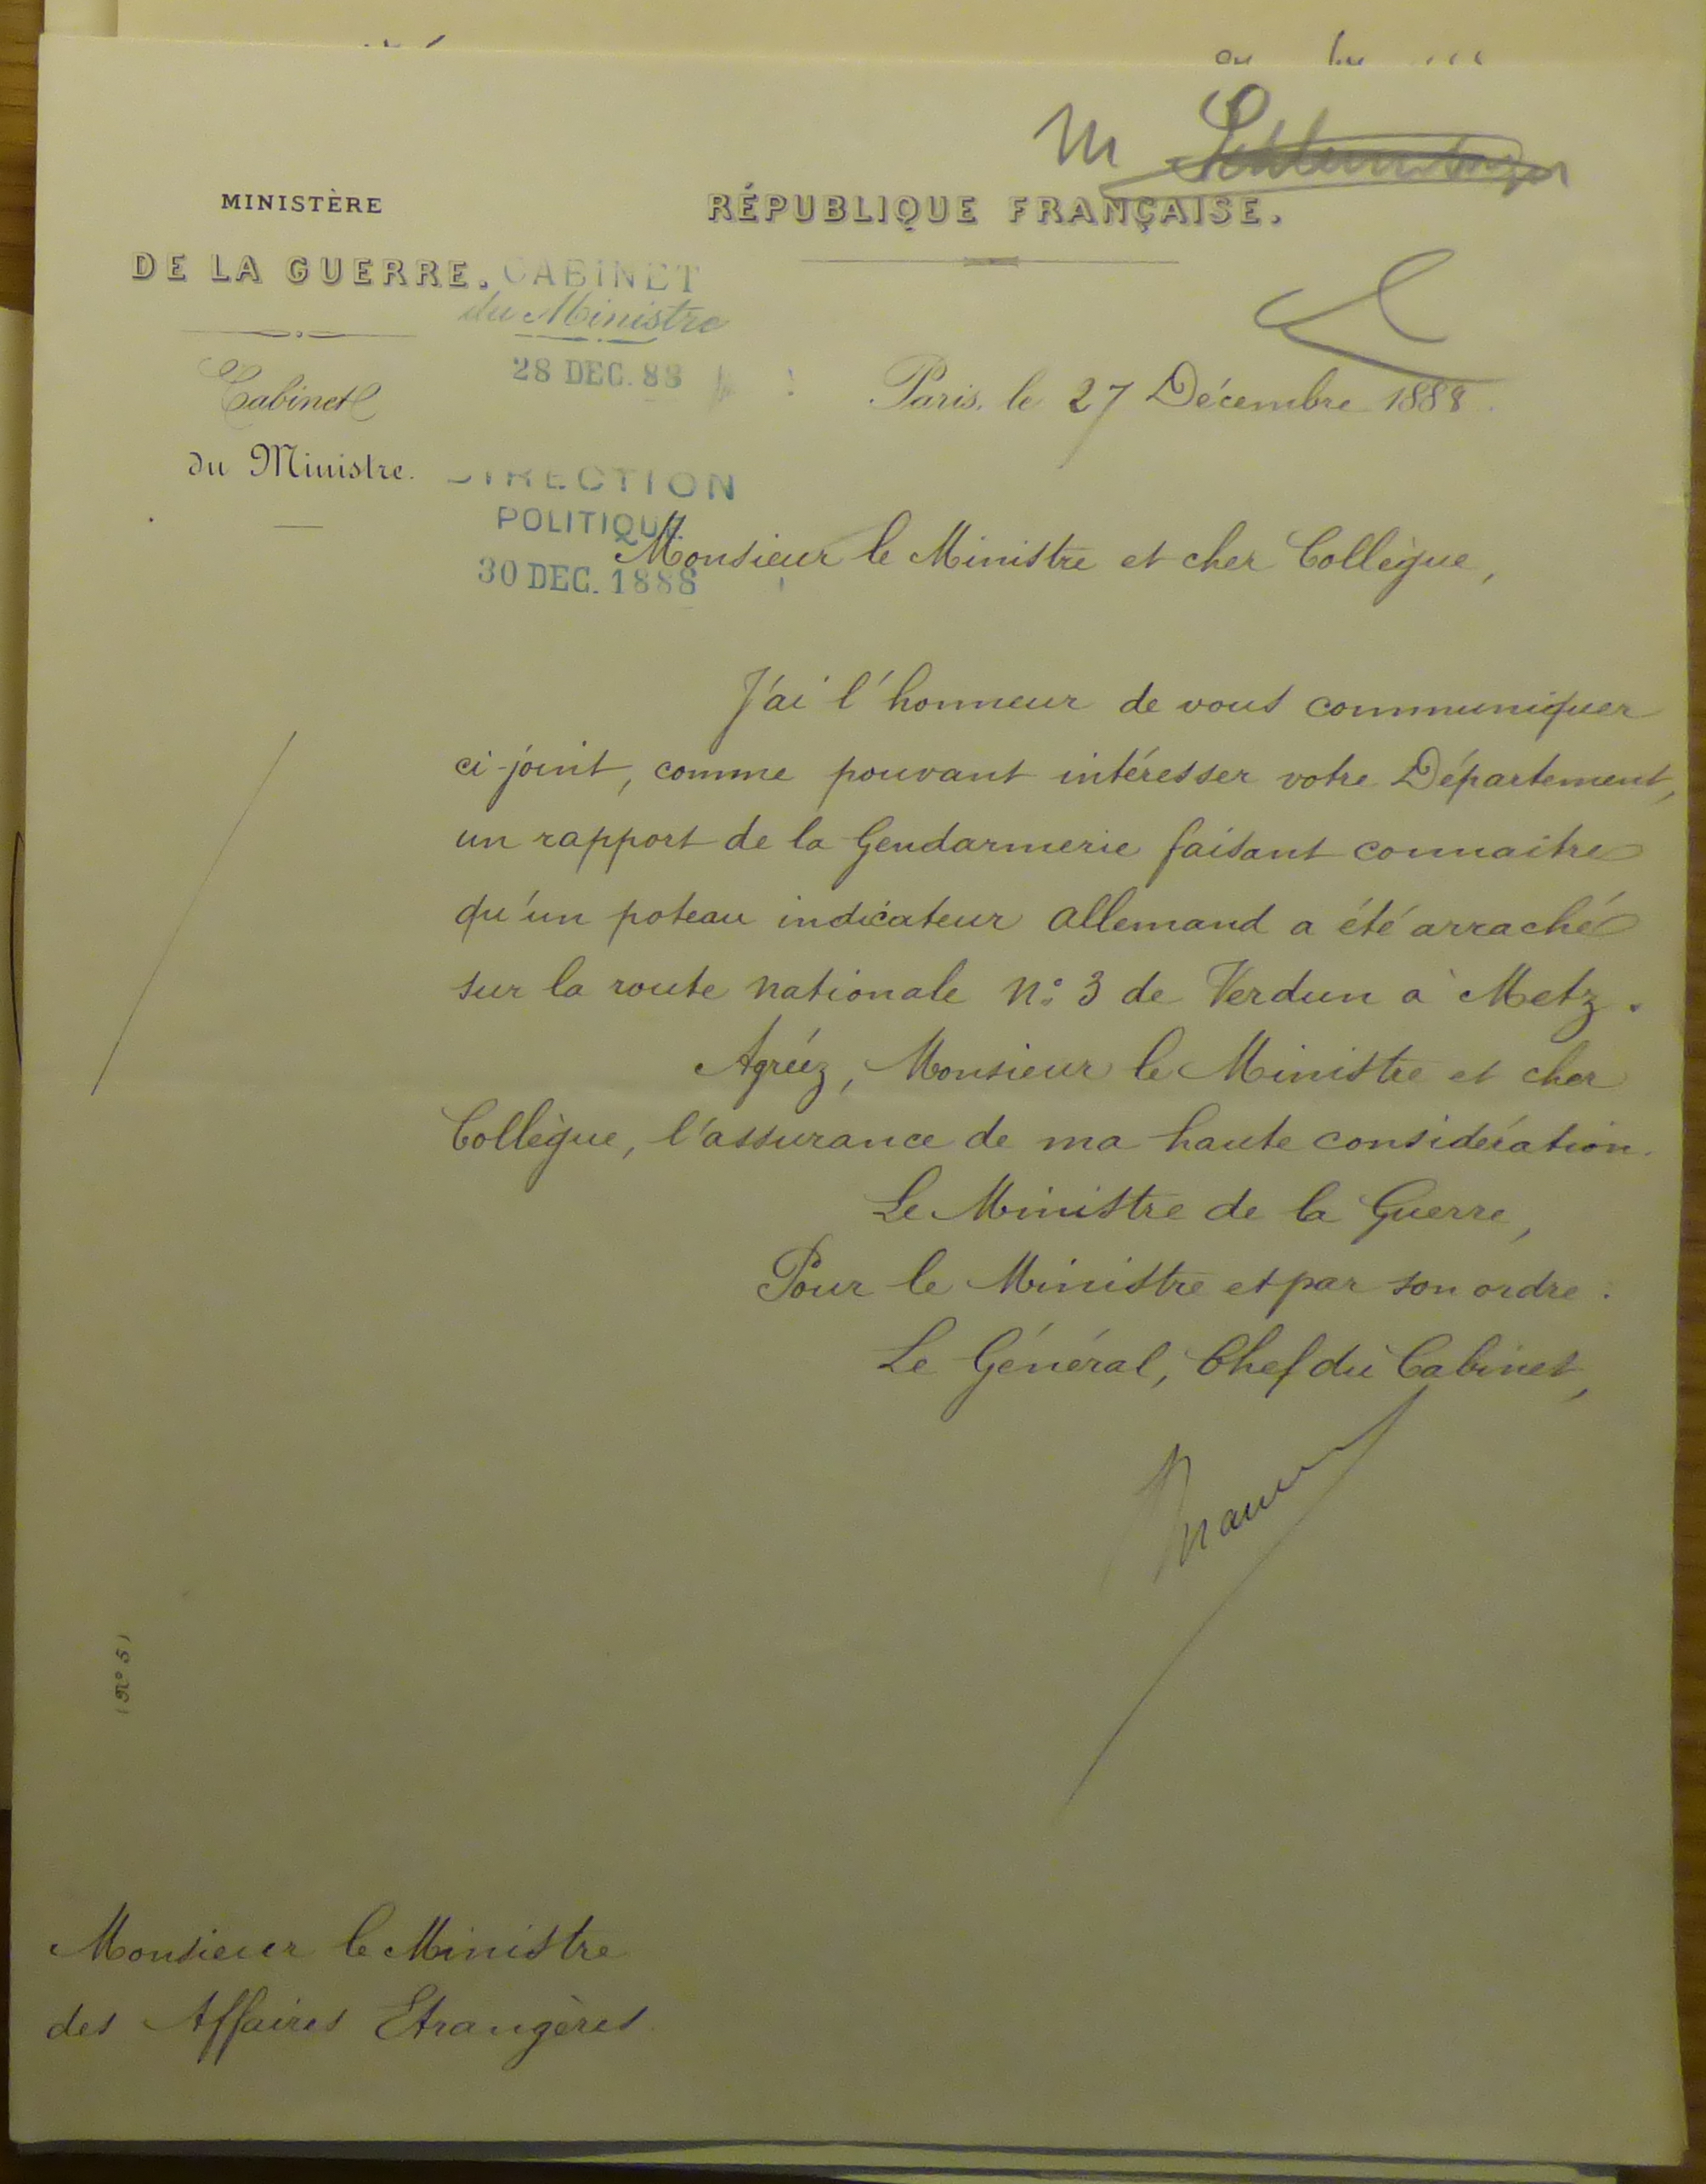 M
MINISTÈRE
DE LA GUERRE.
Cabinet
du Ministre.
RÉPUBLIQUE FRANÇAISE.
CABINET
du Ministre
28 DEC. 88
Paris, le 27 Décembre 1888.
DIRECTION
POLITIQUE
30 DEC. 1888
Monsieur le Ministre et cher Collègue,
J'ai l'honneur de vous communiquer
ci-joint, comme pouvant intéresser votre Département,
un rapport de la Gendarmerie faisant connaitre
qu'un poteau indicateur allemand a été arraché
sur la route nationale No 3 de Verdun à Metz.
Agréez, Monsieur le Ministre et cher
Collègue, l'assurance de ma haute considération.
Le Ministre de la Guerre,
Pour le Ministre et par son ordre :
Le Général, Chef du Cabinet,
(No 5)
Monsieur le Ministre
des Affaires Etrangères